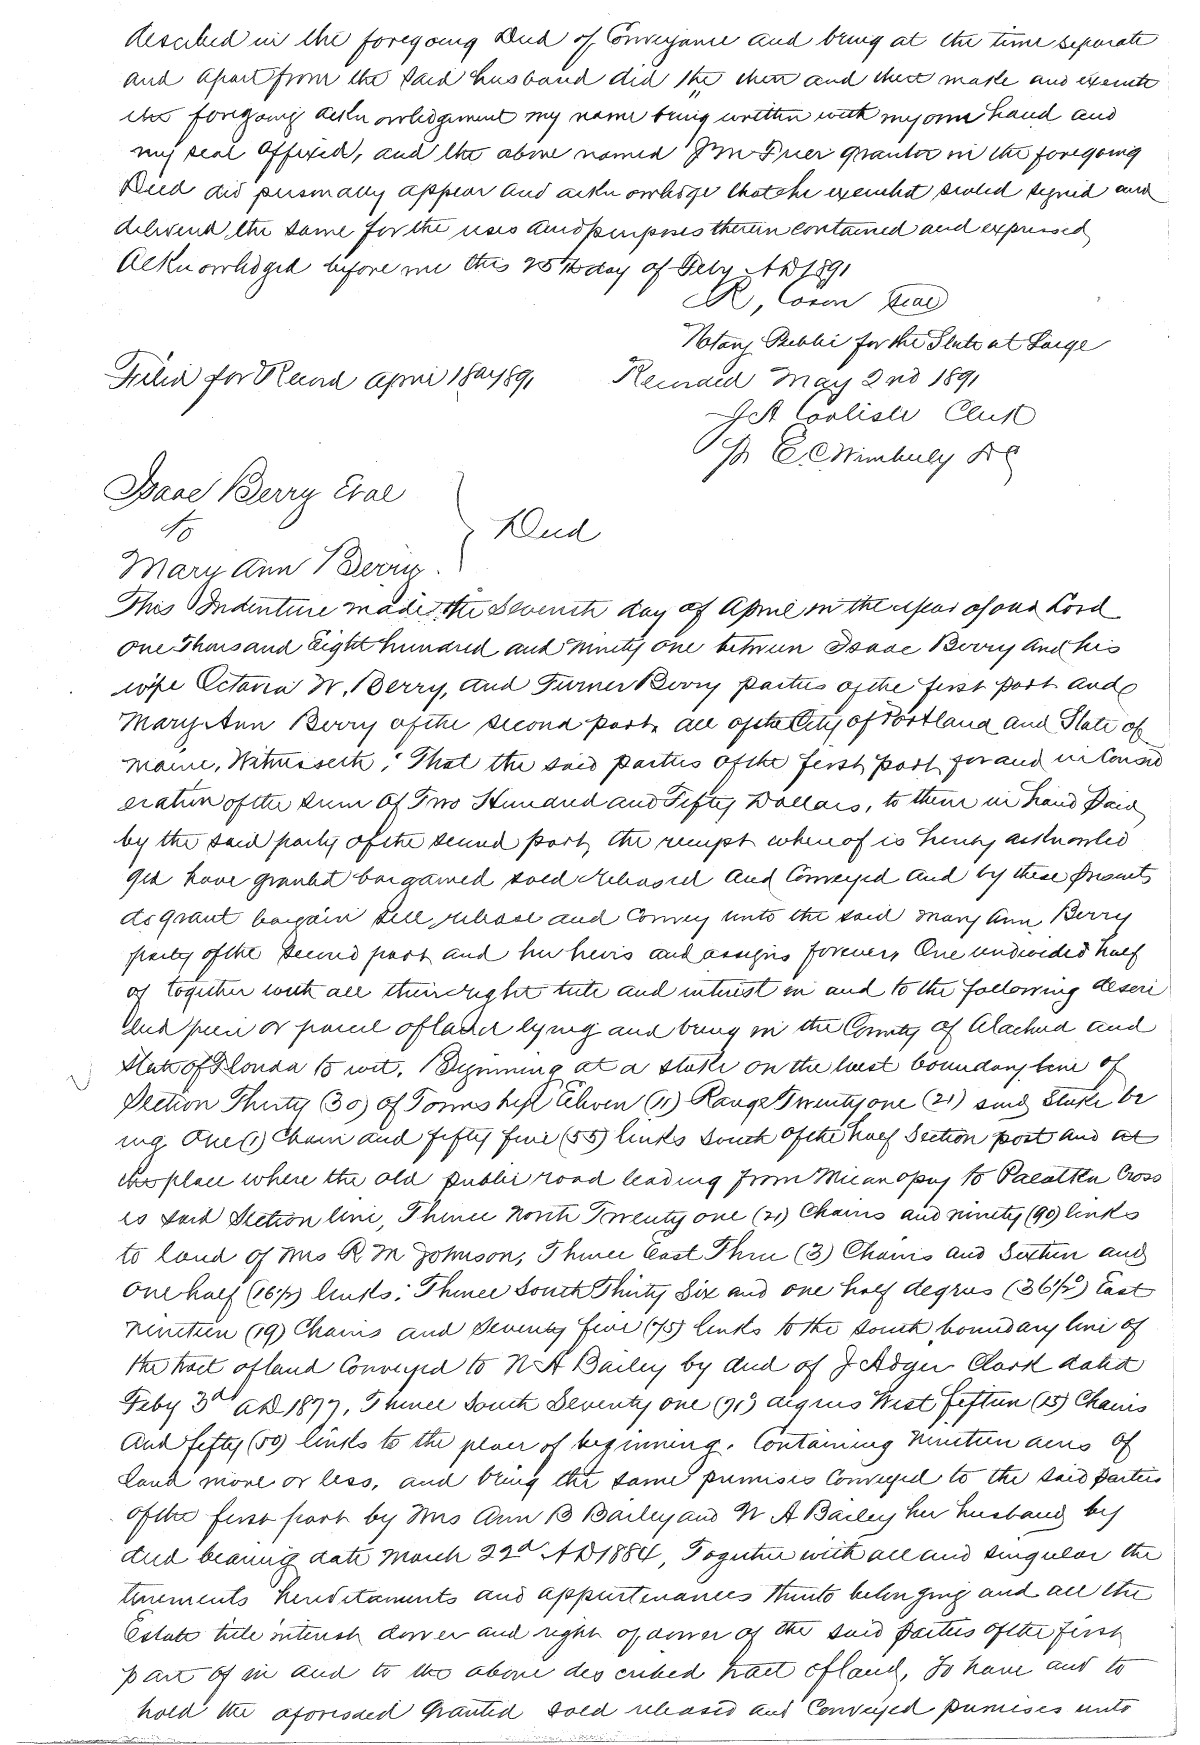 described in the foregoing Deed of Conveyance and being at the time separate
and apart from the said husband did the then and there make and execute
the foregoing acknowledgement my name being written with my own hand and
my seal affixed, and the above named Jm Frier grantor in the foregoing
Deed did personally appear and acknowledge that he executed sealed signed and
delivered the same for the uses and purposes therein contained and expressed
Acknowledged before me this 25th day of Feby AD 1891
R, Cason Seal
Notary Public for the State at Large
Filed for Record April 18th 1891 Recorded May 2nd 1891
J A Carlisle Clerk
Pr E. C Wimberly DC
Isaac Berry Etal
to } Deed
Mary Ann Berry.
This Indenture made the Seventh day of April in the year of our Lord
one Thousand Eight hundred and ninety one between Isaac Berry and his
wife Octavia W. Berry, and Turner Berry parties of the first part and
Mary Ann Berry of the second part, all of the City of Portland and State of
Maine, Witnesseth; That the said parties of the first part for and in Consid
eration of the sum of Two Hundred and Fifty Dollars, to them in hand paid
by the said party of the second part, the receipt whereof is hereby acknowled
ged have granted bargained sold released and Conveyed and by these presents
do grant bargain sell release and Convey unto the said Mary Ann Berry
party of the second part and her heirs and assigns forever, One undivided half
of together with all their right title and interest in and to the following descri
bed piece or parcel of land lying and being in the County of Alachua and
State of Florida to wit. Beginning at a stake on the West boundary line of
Section Thirty (30) of Township Eleven (11) Range Twenty one (21) said Stake be
ing One (1) Chain and fifty five (55) links South of the half Section post and at
the place where the old public road leading from Micanopy to Palatka Cross
es said Section line, Thence North Twenty one (21) Chains and ninety (90) links
to land of Mrs R. M Johnson, Thence East Three (3) Chains and Sixteen and
one half (16½) links; Thence South Thirty Six and one half degrees (36½°) East
nineteen (19) Chains and Seventy five (75) links to the South boundary line of
the tract of land Conveyed to N A Bailey by deed of J Adger Clark dated
Feby 3d AD 1877, Thence South Seventy one (71°) degrees West fifteen (15) Chains
and fifty (50) links to the place of beginning. Containing nineteen acres of
land more or less, and being the same premises Conveyed to the said parties
of the first part by Mrs Ann B Bailey and N A Bailey her husband by
deed bearing date March 22d AD 1884, Together with all and singular the
tenements hereditaments and appurtenances thereto belonging and all the
Estate title interest dower and right of dower of the said parties of the first
part of in and to the above described tract of land, To have and to
hold the aforesaid granted sold released and Conveyed premises unto